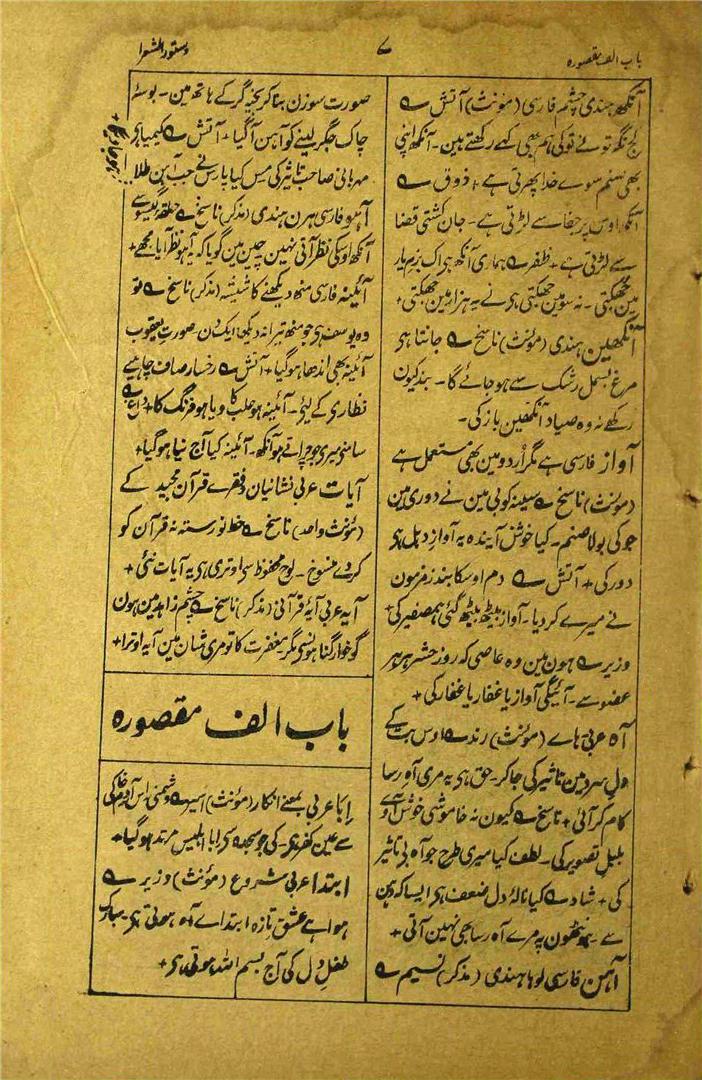 باب الف مقصورہ
۷
دستور الشعرا
آنکھ ہندی چشم فارسی (مؤنث) آتش ؎
نگہ تو نے تو کی ہم بھی کہے رکھتے ہین۔ آنکھ اپنی
بھی صنم سوے خدا پھرتی ہے + ذوق ؎
آنکھ اوس پر جفا سے لڑتی ہے۔ جان کشتی قضا
سے لڑتی ہے + ظفر ؎ ہماری آنکھ ہی اک بزم یار
مین جھپکی۔ نہ سو مین جھپکی ہی نے یہ ہزار مین جھپکی +
آنکھین ہندی (مؤنث) ناسخ ؎ جانتا ہی
مرغ بسمل رشک سے ہو جائے گا۔ بند کیون
رکھے نہ وہ صیاد آنکھین باز کی۔
آواز فارسی ہے مگر اُردو مین بھی مستعمل ہے
(مؤنث) ناسخ ؎ سینہ کوبی مین نے دوری مین
جو کی بولا صنم۔ کیا خوش آیندہ یہ آواز دہل ہی
دور کی + آتش ؎ دم اوسکا بند زمزمون
نے میرے کر دیا۔ آواز بیٹھ بیٹھ گئی ہمصفیر کی +
وزیر ؎ ہون مین وہ عاصی کہ روز حشر ہر ہر
عضو سے۔ آئیگی آواز یا غفار یا غفار کی +
آہ عربی ہاے (مؤنث) رند ؎ اوس بت کے
دل سرد مین تاثیر کی جا کر۔ حق ہی یہ مری آہ رسا
کام کر آئی + ناسخ ؎ کیون نہ خاموشی خوش آے
بلبل تصویر کی۔ لطف کیا میری طرح جو آہ بی تاثیر
کی + شاد ؎ کیا نالۂ دل ضعف ہی ایسا کہ دہن
سے۔ ہونٹھون پہ مرے آہ رسا بھی نہین آتی +
آہن فارسی لوہا ہندی (مذکر) نسیم ؎
صورت سوزن بنا کر بخیہ گر کے ہاتھ مین۔ بوسۂ
چاک جگر لینے کو آہن آگیا + آتش ؎ کیمیا ہی
مہربانی صاحب تاثیر کی مس کیا پارس نے جب آہن طلا
آہو فارسی ہرن ہندی (مذکر) ناسخ ؎ حلقۂ گیسو سے
آنکھ اوسکی نظر آتی نہین چین مین گویا کہ یہ آہو نظر آیا مجھے +
آئینہ فارسی منھ دیکھنے کا شیشہ (مذکر) ناسخ ؎ تو
وہ یوسف ہی جو منھ تیرا نہ دیکھا ایک دن۔ صورت یعقوب
آئینہ بھی اندھا ہو گیا + آتش ؎ رخسار صاف چاہیے
نظاری کے لئے۔ آئینہ ہو حلب کا و یا ہو فرنگ کا + داغ ؎
سامنی میری جو چراتے ہو آنکھ۔ آئینہ کیا آج نیا ہو گیا +
آیات عربی نشانیان و فقرے قرآن مجید کے
(مؤنث واحد) ناسخ ؎ خط نورستہ نہ قرآن کو
کر دے منسوخ۔ لوح محفوظ سی اوتری ہی یہ آیات نئی +
آیہ عربی آیۂ قرآنی (مذکر) ناسخ ؎ چشم زاہد مین ہون
گو خوار گناہونسی مگر۔ مغفرت کا تو مری شان مین آیہ اوترا +
باب الف مقصورہ
اِبا عربی بمعنے انکار (مؤنث) اسیر ؎ دشمنی اس آدم خاکی
سے عین کفر ہی۔ کی جو سجدہ سی ابا ابلیس مرتد ہو گیا +
ابتدا عربی شروع (مؤنث) وزیر ؎
ہوا ہے عشق تازہ ابتداے آہ ہوتی ہی۔ مبارک
طفل دل کی آج بسم اللہ ہوتی ہی +